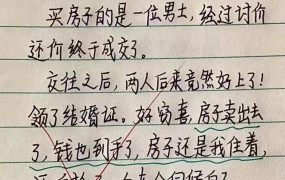 买房子的是一位男士,经过讨价
还价终于成交了。
交往之后,两人后来竟然好上了!
领了结婚证。好窃喜,房子卖出去
了,钱也到手了,房子还是我住着,